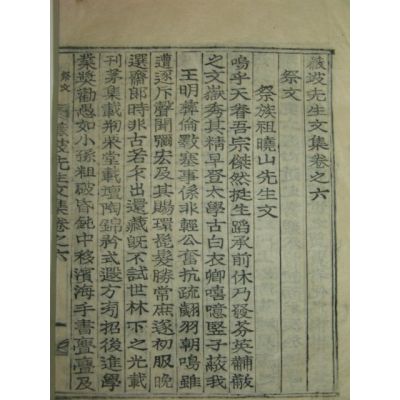 薇坡先生文集卷之六
祭文
祭族祖曉山先生文
嗚乎天眷吾宗傑然挺生蹈承前休乃發芬英黼黻
之文嶽秀其精早登太學古白衣卿嘻噫竪子蔽我
王明彛倫斁塞事係非輕公奮抗疏翽羽朝鳴雖
遭逐斥聲聞彌宏及其賜環髮勝常庶遂初服晚
選齋郎時非古若卒出還藏旣不試世林下之光載
刊茅集載荊葵堂載壇陶錦矜式遐方旁招後進學
業奬勸愚如小孫粗破昏鈍中移濱海手書亹亹及
祭文
薇坡先生文集卷之六
一